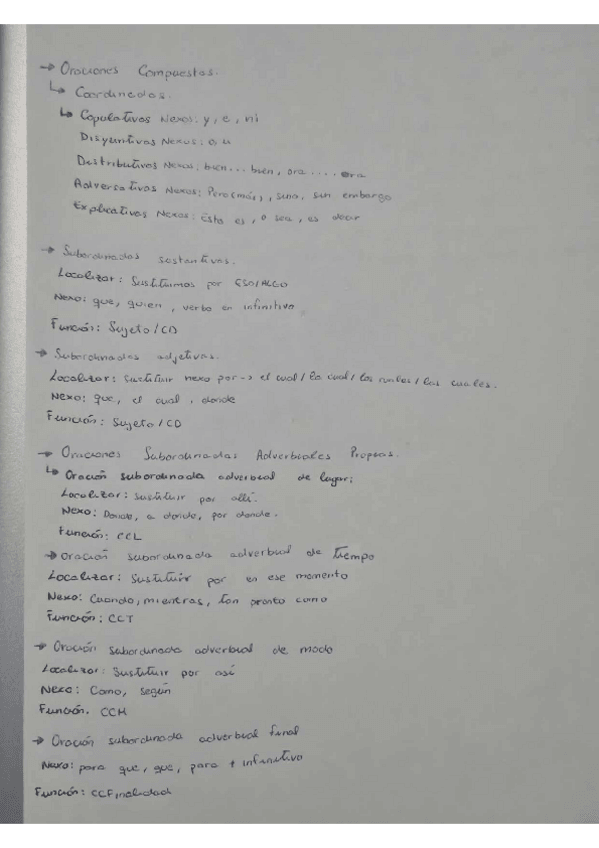 → Oraciones Compuestas.
↳ Coordinadas.
↳ Copulativos Nexos: y, e, ni
Disyuntivas Nexus: o, u
Distributivos Nexus: bien... bien, ora .... ora
Adversativas Nexus: Pero(más), sino, sin embargo
Explicativos Nexos: Esto es, o sea, es decir
→ Subordinadas sustantivas.
Localizar: Sustituimos por ESO/ALGO
Nexo: que, quien, verbo en infinitivo
Función: Sujeto/CD
→ Subordinadas adjetivas.
Localizar: Sustituir nexo por-> el cual/la cual/los cuales/las cuales.
Nexo: que, el cual, donde
Función: Sujeto/CD
→ Oraciones Subordinadas Adverbiales Propias.
↳ Oración subordinada adverbial de lugar:
Localizar: Sustituir por allí.
Nexo: Donde, a donde, por donde.
Función: CCL
→ oración subordinada adverbial de Tiempo
Localizar: Sustituir por en ese momento
Nexo: Cuando, mientras, tan pronto como
Función: CCT
→ Oración subordinada adverbial de modo
Localizar: Sustituir por así
Nexo: Como, según
Función. CCM
→ Oración subordinada adverbial final
Nexo: para que, que, para + infinitivo
Función: CCFinalidad